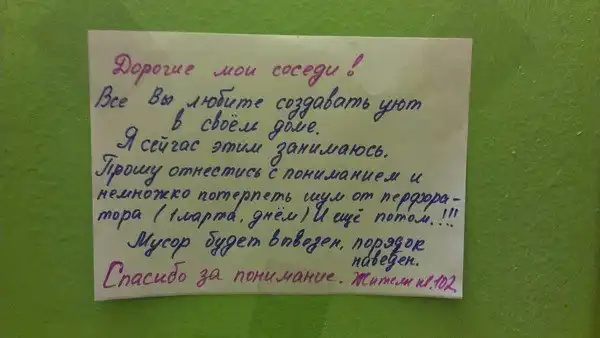 Дорогие мои соседи!
Все Вы любите создавать уют
в своём доме.
Я сейчас этим занимаюсь.
Прошу отнестись с пониманием и
немножко потерпеть шум от перфора-
тора (1 марта, днём) И ещё потом..!!!
Мусор будет вывезен, порядок
наведен.
Спасибо за понимание. Жители кв. 102